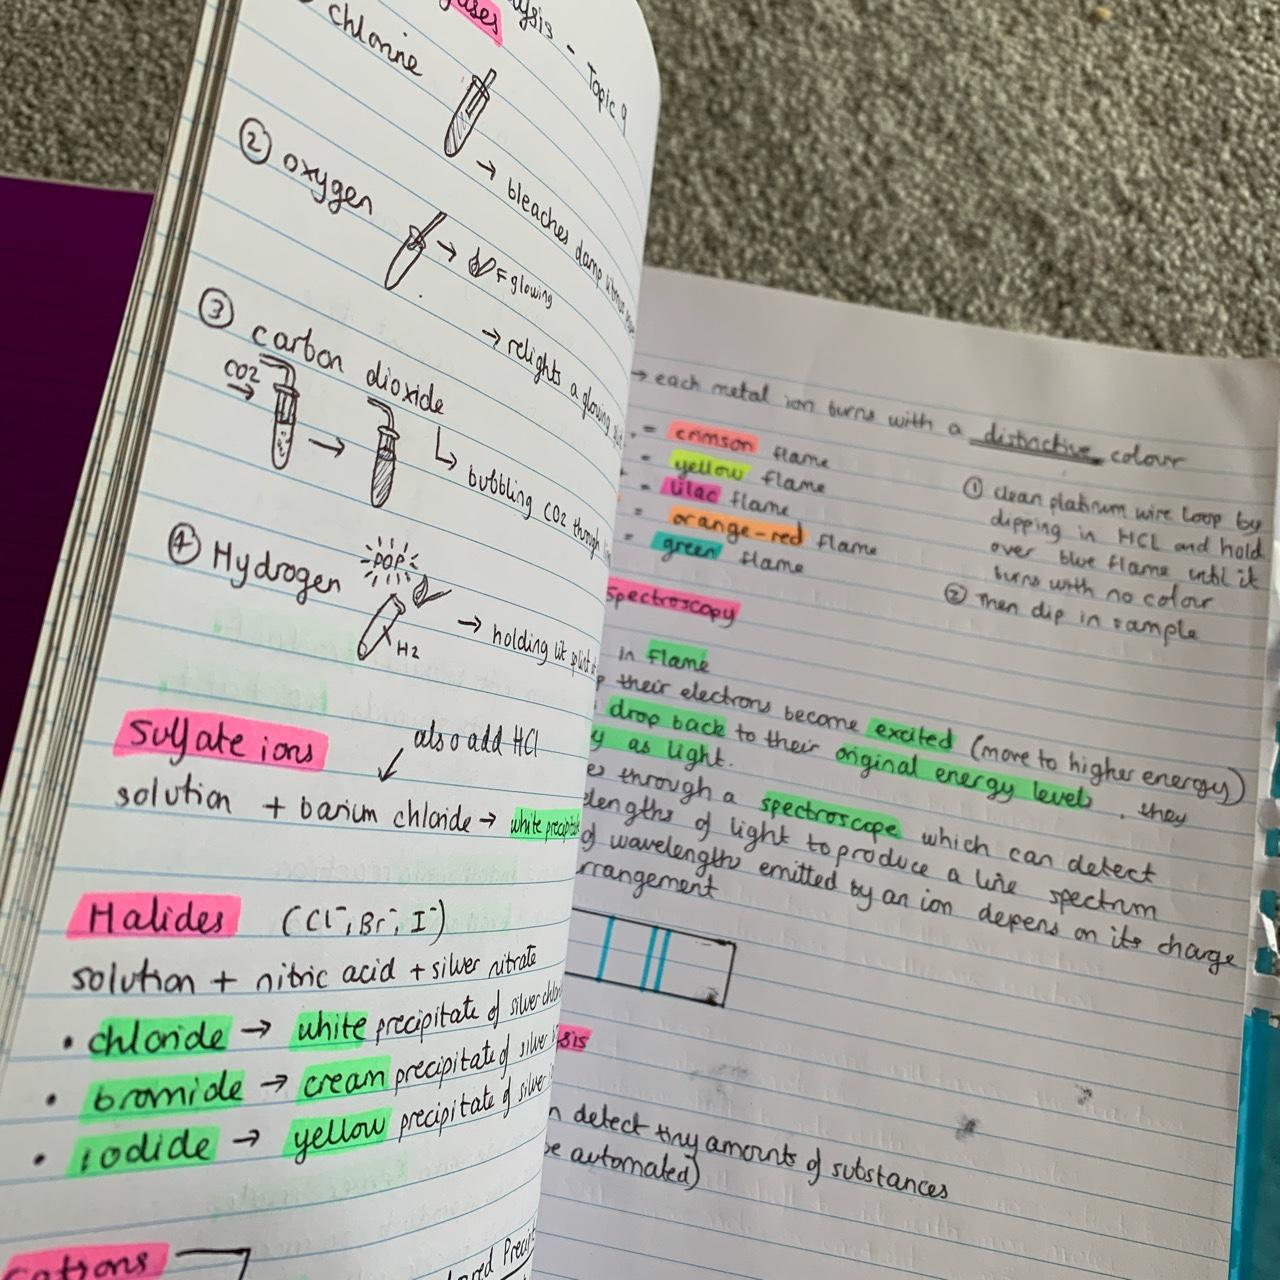 gases
ysis - Topic 9
chlorine
→ bleaches damp
② oxygen
→ = glowing
→ relights a glowing
③ carbon dioxide
CO2
→
→
bubbling CO2 through
④ Hydrogen
POP
H2
→ holding lit splint
Sulfate ions
also add HCl
solution + barium chloride → white precipit
Halides (Cl⁻, Br⁻, I⁻)
solution + nitric acid + silver nitrate
• chloride → white precipitate of silver chlo
• bromide → cream precipitate of silver
• iodide → yellow precipitate of silver
cations
ured Precipit
→ each metal ion burns with a distinctive colour
= crimson flame
= yellow flame
= lilac flame
= orange-red flame
= green flame
① clean platinum wire loop by
dipping in HCL and hold
over blue flame until it
burns with no colour
② Then dip in sample
Spectroscopy
in flame
their electrons become excited (move to higher energy)
drop back to their original energy levels, they
y as light.
es through a spectroscope which can detect
elengths of light to produce a line spectrum
of wavelengths emitted by an ion depends on its charge
rrangement
sis
n detect tiny amounts of substances
be automated)